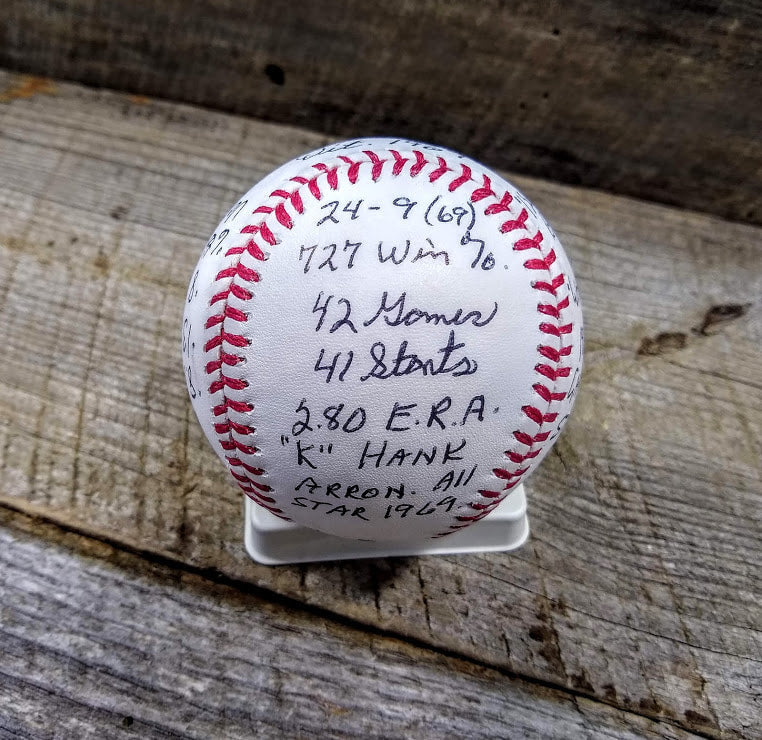 24-9 (69)
727 Win %.
42 Games
41 Starts
2.80 E.R.A.
"K" HANK
ARRON. All
STAR 1969.